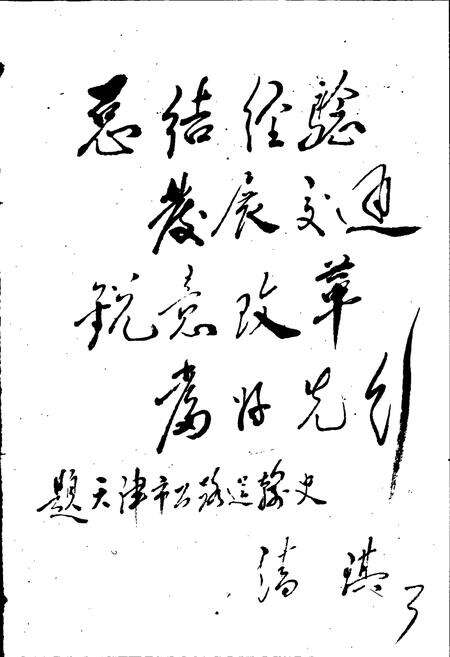 总结经验
發展交通
锐意改革
當好先行
题天津市公路运输史
清琪